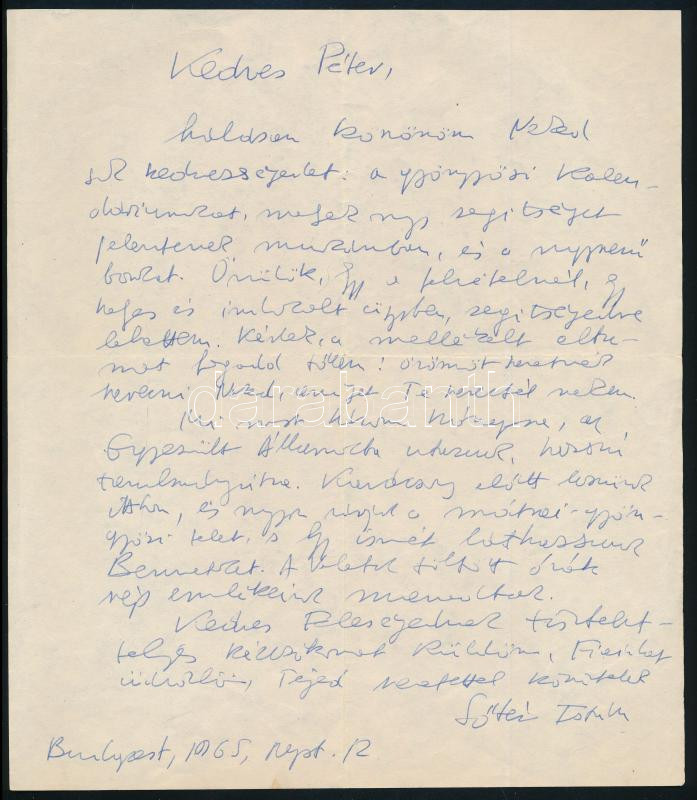 Kedves Péter,
hálásan köszönöm Neked
sok kedvességedet: a gyöngyösi Kalen-
dáriumokat, melyek nagy segítséget
jelentenek munkámban, és a nagyszerű
borokat. Örülök, hogy a felvételnél, egy
helyes és indokolt ügyben, segítségedre
lehettem. Kérlek, a mellékelt albu-
mot fogadd tőlem! örömöt szeretnék
szerezni Neked, amilyet Te szereztél nekem.
Mi most három hónapra, az
Egyesült Államokba utazunk, hosszú
tanulmányútra. Karácsony előtt leszünk
itthon, és nagyon várjuk a mátrai-gyön-
gyösi telet, s hogy ismét láthassunk
Benneteket. A Veletek töltött órák
szép emlékeink maradtak.
Kedves Feleségednek tisztelet-
teljes kézcsókomat küldöm, Fiaidat
üdvözlöm, Téged szeretettel köszöntelek
Sőtér István
Budapest, 1965, szept. 12
darabanth